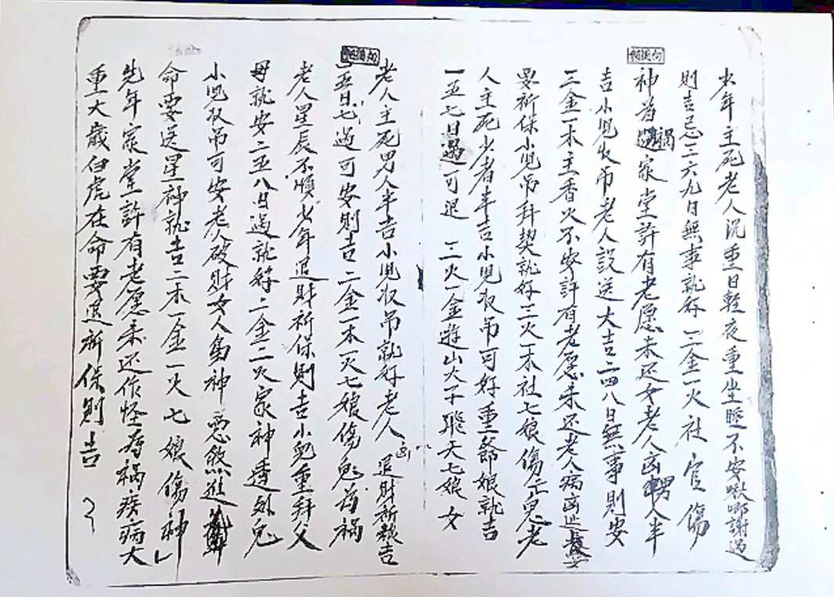 少年主死老人沉重日輕夜重坐睡不安啾唧謝過
則吉忌三六九日無事就好 二金一火社官傷
神為禍家堂許有老愿未還女老人凶男人半
吉小兒收吊老人設送大吉二四八日無事則安
二金一木主香火不安許有老愿未還老人病凶進
要祈保小兒吊拜契就好二火一木社七娘傷亡鬼老
人主死少者半吉小兒收吊可好重節娘就吉
一五七日過可退 二火一金遊山大王 天七娘女
老人主死男人半吉小兒收吊就好老人凶 退財祈福吉
五日七過可安則吉二金一木一火七娘傷鬼為禍
老人星辰不順少年退財祈保則吉小兒重拜父
母就安二五八日過就好二金二火家神遠外鬼
小兒收吊可安老人破財女人鳥神 惡煞進
命要送星神就吉二木一金一火七娘傷神
先年家堂許有老愿未還作怪為禍疾病大
重大歲白虎在命要送祈保則吉